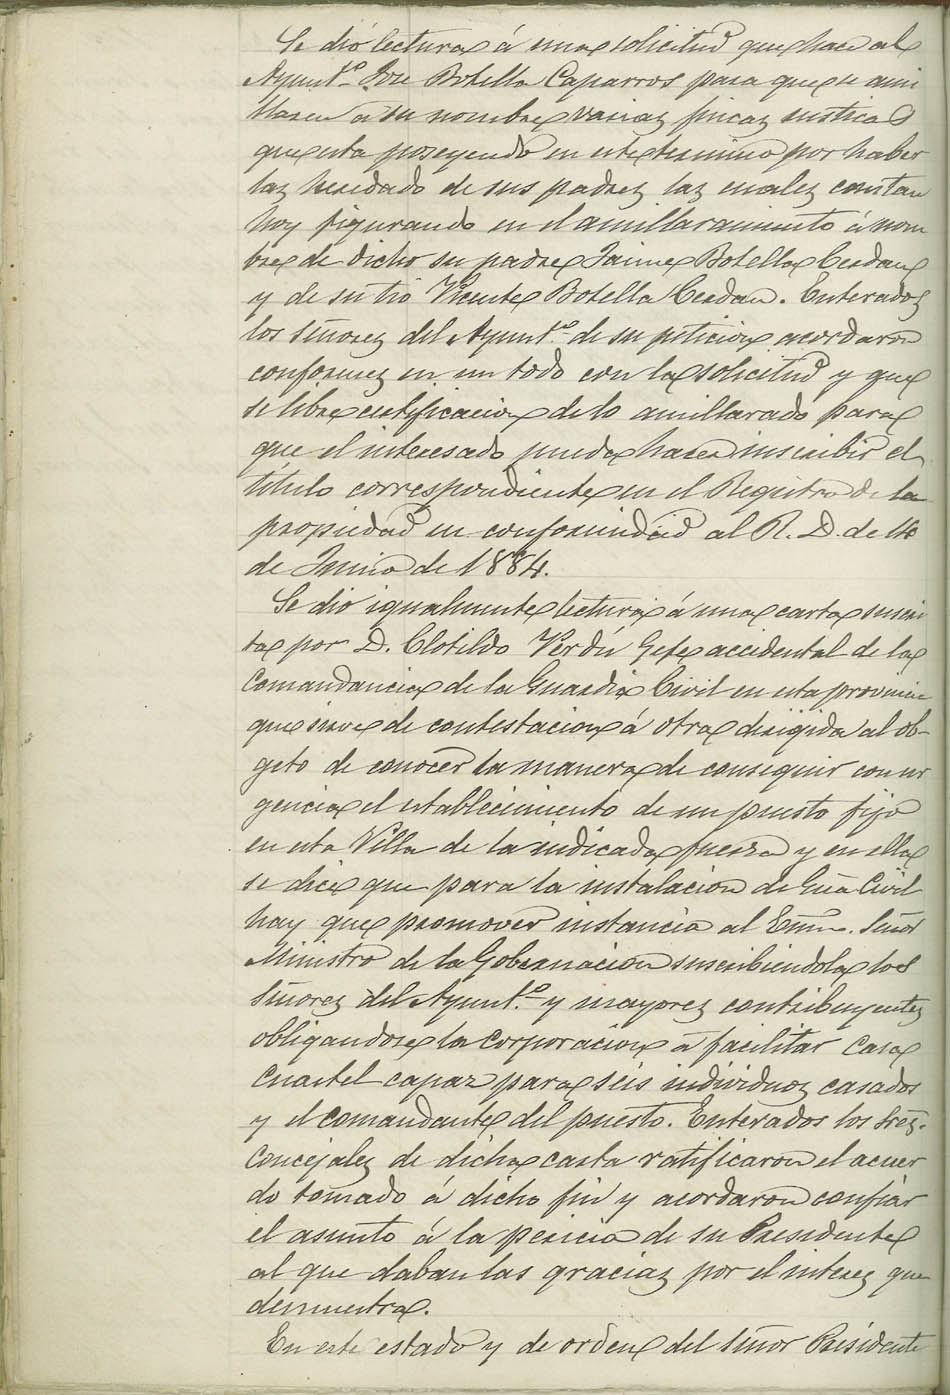 Se dió lectura á una solicitud que hace al
Ayunt.º José Botella Caparros para que se ami
llaren á su nombre varias fincas rusticas
que esta poseyendo en este termino por haber
las heredado de sus padres las cuales constan
hoy figurando en el amillaramiento á nom
bre de dicho su padre Jaime Botella Cerdan
y de su tio Vicente Botella Cerdan. Enterados
los Señores del Ayunt.º de su peticion acordaron
conformes en un todo con la solicitud y que
se libre certificacion de lo amillarado para
que el interesado pueda hacer inscribir el
título correspondiente en el Registro de la
propiedad en conformidad al R. D. de
de Junio de 1884.
Se dio igualmente lectura á una carta suscri
ta por D. Clotildo Verdú Gefe accidental de la
Comandancia de la Guardia Civil en esta provincia
que sirve de contestacion á otra dirigida al ob-
geto de conocer la manera de conseguir con ur
gencia el establecimiento de un puesto fijo
en esta Villa de la indicada fuerza y en ella
se dice que para la instalacion de Gũa Civil
hay que promover instancia al Exmo. Señor
Ministro de la Gobernacion suscribiendola los
Señores del Ayunt.º y mayores contribuyentes
obligandose la corporacion á facilitar Casa
Cuartel capaz para seis individuos casados
y el comandante del puesto. Enterados los Sres.
Concejales de dicha carta ratificaron el acuer
do tomado á dicho fin y acordaron confiar
el asunto á la pericia de su Presidente
al que daban las gracias por el interes que
demuestra.
En este estado y de orden del Señor Presidente